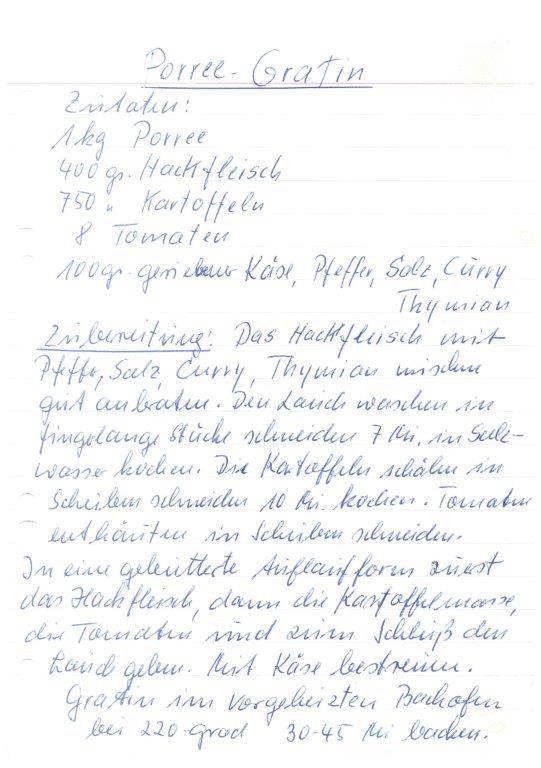 Porree-Gratin
Zutaten:
1 kg Porree
400 gr. Hackfleisch
750 " Kartoffeln
8 Tomaten
100 gr. geriebener Käse, Pfeffer, Salz, Curry
Thymian
Zubereitung: Das Hackfleisch mit
Pfeffer, Salz, Curry, Thymian mischen
gut anbraten. Den Lauch waschen in
fingerlange Stücke schneiden 7 Mi. in Salz-
wasser kochen. Die Kartoffeln schälen in
Scheiben schneiden 10 Mi. kochen. Tomaten
enthäuten in Scheiben schneiden.
In eine gebutterte Auflaufform zuerst
das Hackfleisch, dann die Kartoffelmasse,
die Tomaten und zum Schluß den
Lauch geben. Mit Käse bestreuen.
Gratin im vorgeheizten Backofen
bei 220-grad 30-45 Mi backen.